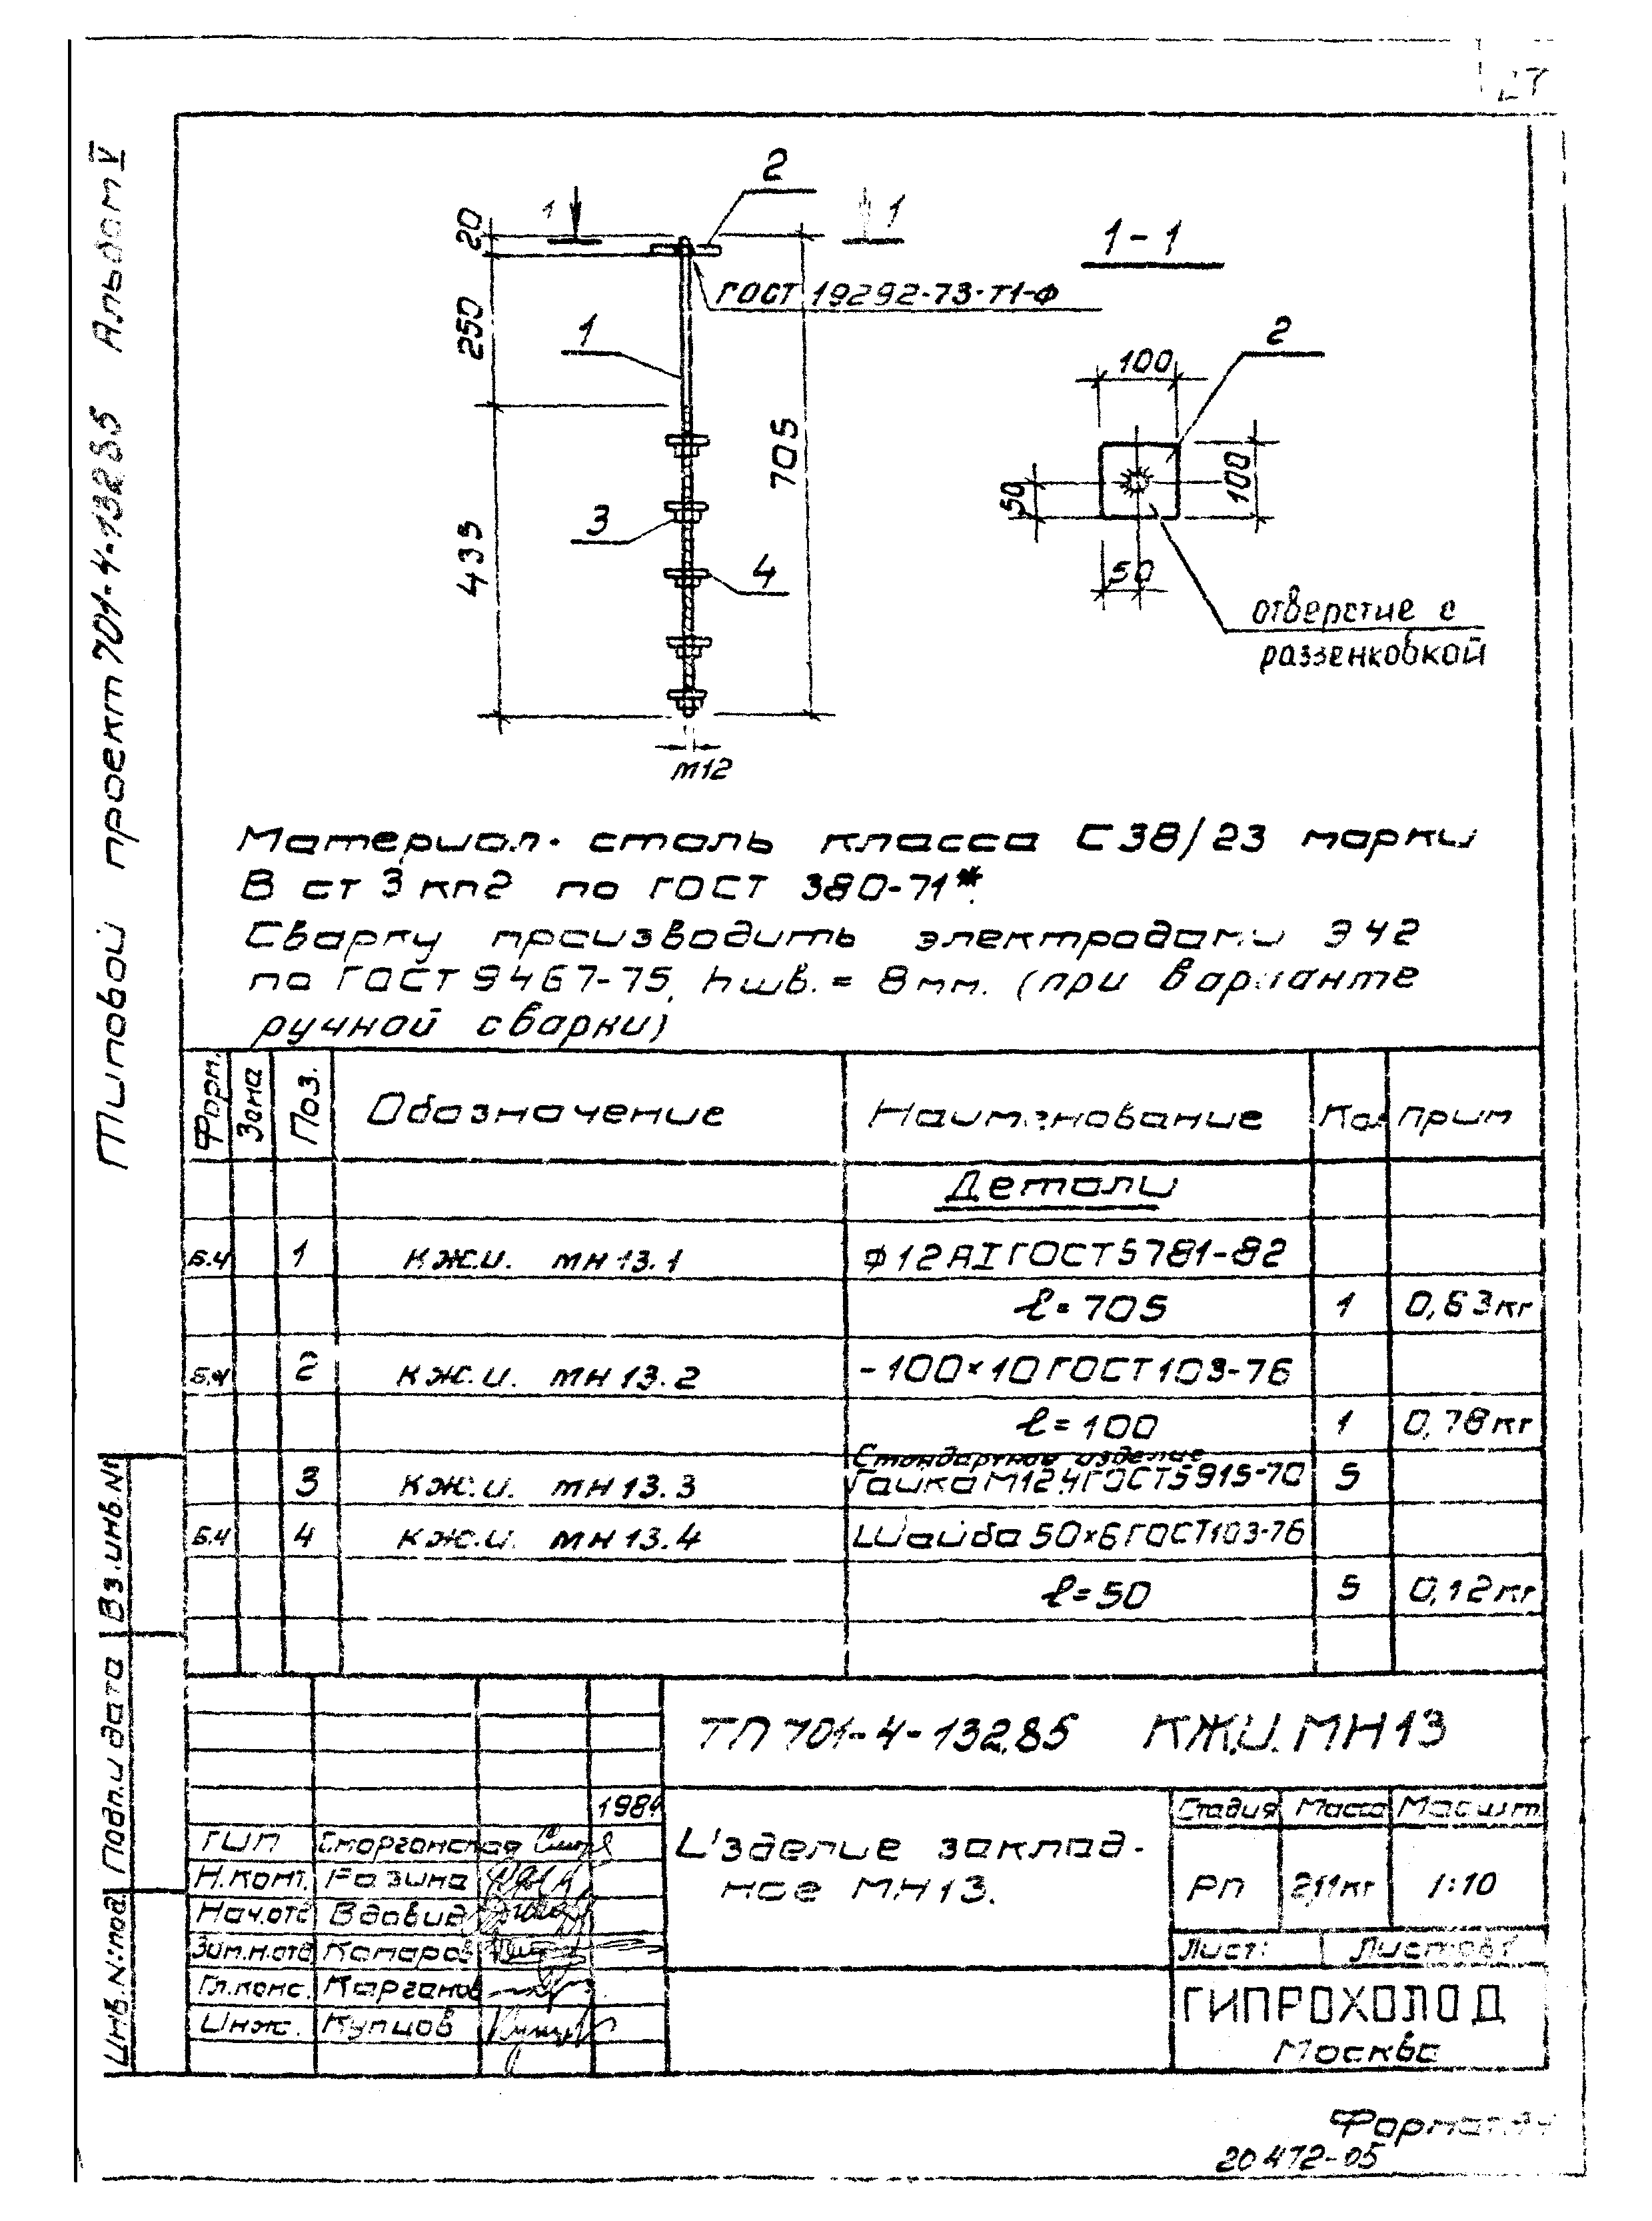 27
Типовой проект 701-4-132.85 Альбом V
2
1
1
20
1-1
ГОСТ 19292-73-Т1-Ф
250
1
2
100
705
50
100
3
433
4
50
отверстие с
раззенковкой
М12
Материал- сталь класса С38/23 марки
В ст 3 кп2 по ГОСТ 380-71*.
Сварку производить электродами Э42
по ГОСТ 9467-75, hшв. = 8мм. (при варианте
ручной сварки)
Форм. Зона Поз. Обозначение Наименование Кол Прим
Детали
Б.Ч 1 КЖ.И. МН 13.1 ϕ12АI ГОСТ 5781-82
ℓ=705 1 0,63кг
Б.Ч 2 КЖ.И. МН 13.2 -100×10 ГОСТ 103-76
ℓ=100 1 0,78кг
Стандартное изделие
3 КЖ.И. МН 13.3 Гайка М12.4 ГОСТ 5915-70 5
Б.Ч 4 КЖ.И. МН 13.4 Шайба 50×6 ГОСТ 103-76
ℓ=50 5 0,12кг
Инв.N:под Подп.и дата Вз.инв.N
ТП 701-4-132.85 КЖ.И. МН13
1984
Изделие заклад-
ное МН13.
Стадия Масса Масшт.
РП 2,11кг 1:10
Лист: Листов 1
ГИП Сморгонская
Н.конт. Разина
Нач.отд Вдовид
Зам.н.отд Комаров
Гл.конс. Карганов
Инж. Купцов
ГИПРОХОЛОД
Москва
Формат А4
20472-05